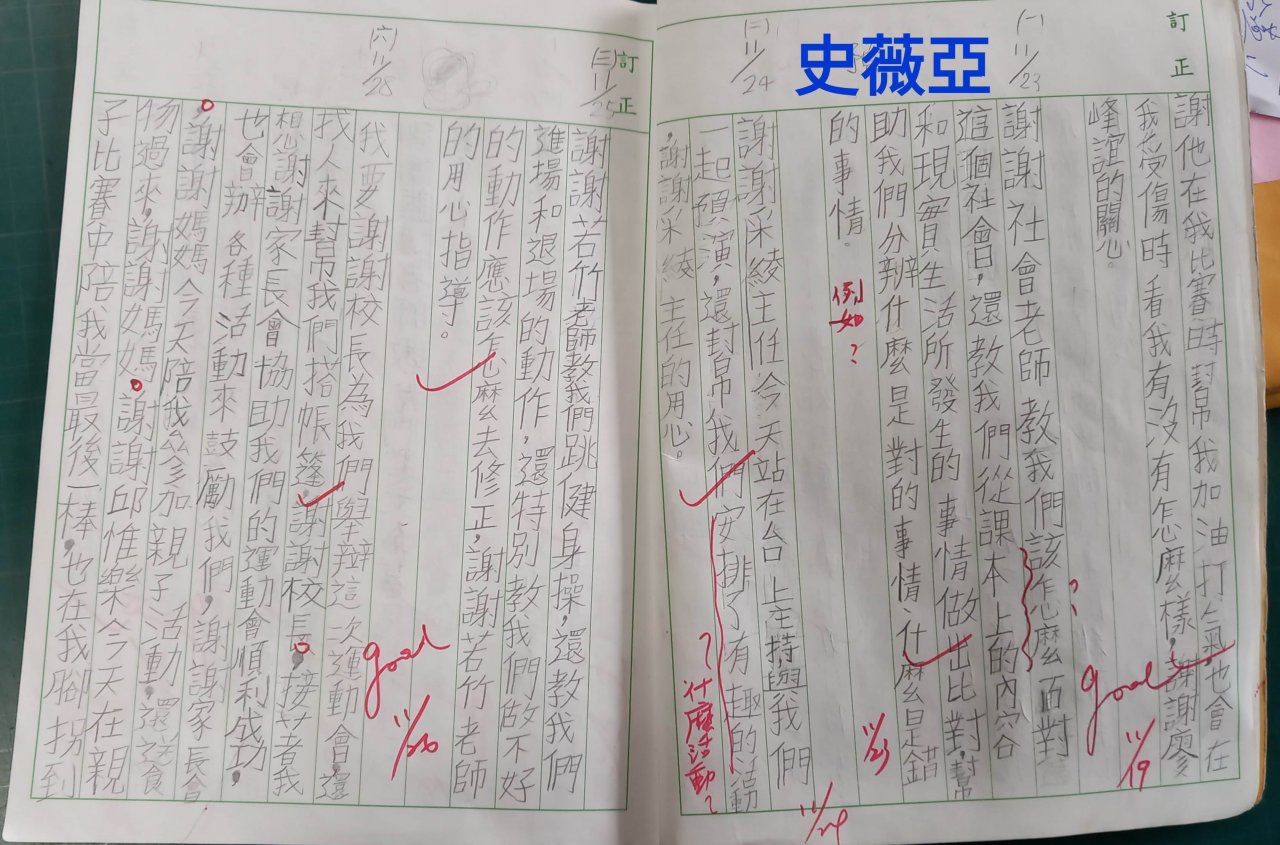 史薇亞
訂正
謝他在我比賽時幫我加油打氣,也會在
我受傷時看我有沒有怎麼樣,謝謝廖
峰誼的關心。
good
11/19
(一)11/23
謝謝社會老師教我們該怎麼面對
這個社會,還教我們從課本上的內容
和現實生活所發生的事情做出比對,幫
助我們分辨什麼是對的事情、什麼是錯
的事情。
例如?
?
11/23
(二)11/24
謝謝采綾主任今天站在台上主持與我們
一起預演,還幫我們安排了有趣的活動
,謝謝采綾主任的用心。
?什麼活動?
11/24
訂正
(三)11/25
謝謝若竹老師教我們跳健身操,還教我們
進場和退場的動作,還特別教我們做不好
的動作應該怎麼去修正,謝謝若竹老師
的用心指導。
good
11/26
(六)11/28
我要謝謝校長為我們舉辦這次運動會,還
找人來幫我們搭帳篷,謝謝校長,接著我
想謝謝家長會協助我們的運動會順利成功,
也會辦各種活動來鼓勵我們,謝謝家長會
。謝謝媽媽今天陪我參加親子活動,還送食
物過來,謝謝媽媽。謝謝邱惟樂今天在親
子比賽中陪我當最後一棒,也在我腳拐到